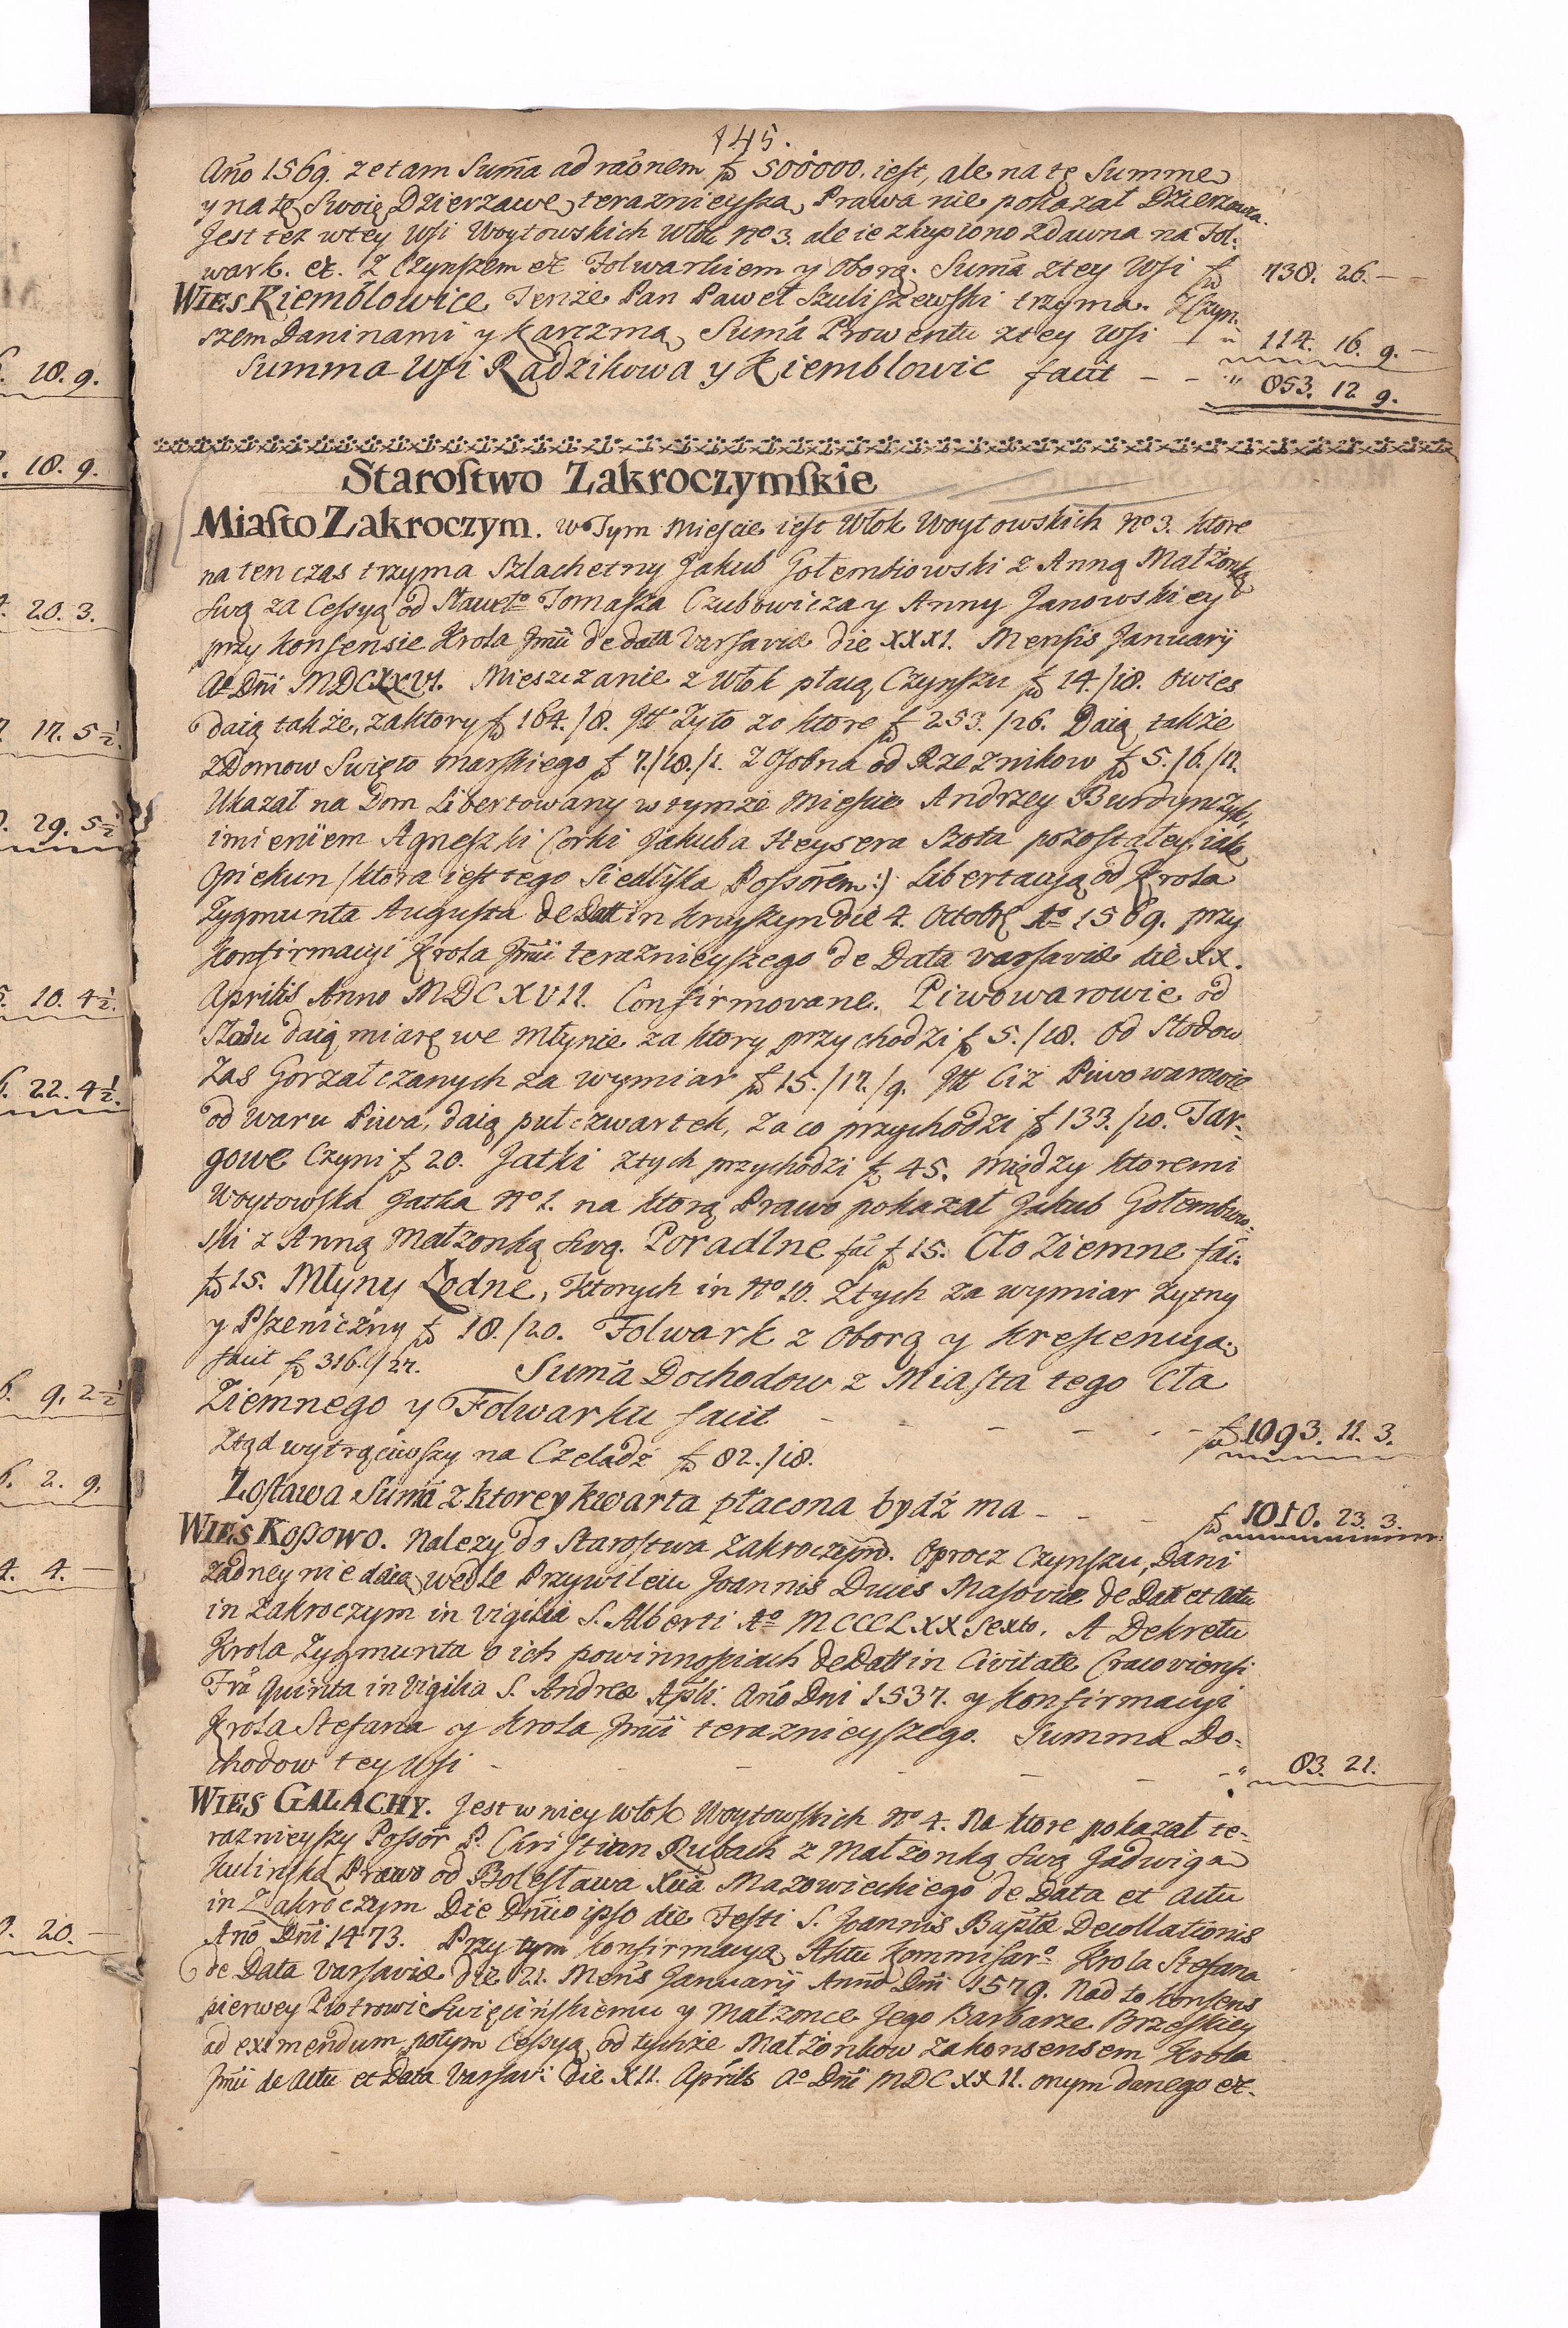 145.
Año 1569. zetam Suma ad raõnem f 500000. iest, ale na tę Summę
y na tę Swoię Dzierzawę teraznieysza Prawa nie pokazał Dzierzawca.
Jest tez w tey Wsi Woytowskich Włok No 3. ale ie zkupiono zdawna na Fol:
wark. et. Z Czynszem et Folwarkiem y Oborą. Suma z tey Wsi f 738. 26. -
WIES Kiemblowice Tenże Pan Paweł Szuliszewski trzyma. Z Czyn:
szem Daninami y Karczmą Suma Prowentu z tey Wsi - " 114. 16. 9. -
Summa Wsi Radzikowa y Kiemblowic facit - - " 853. 12 9.
Starostwo Zakroczymskie
Miasto Zakroczym. w Tym Miescie iest Włok Woytowskich No 3. ktore
na ten czas trzyma Szlachetny Jakub Gołembiowski z Anną Małżonką
swą za Cessyą od Sławeto Tomasza Czubowicza y Anny Janowskiey
przy Konsensie Krola Jmći de data Varsaviæ die XXXI. Mensis Januarij
Ao Dni MDCXXVI. Mieszczanie z Włok płacą Czynszu f 14./18. Owies
daią także, za ktory f 164./8. Itt Zyto za ktore f 253./26. Daią także
z Domow Swięto Marskiego f 7./28./1. Z Osobna od Rzeznikow f 5./6./12.
Ukazał na Dom Libertowany w tymże Miescie Andrzey Burdynczyk
imieniem Agneszki Corki Jakuba Keysera Szota pozostałey, iak
Opiekun /: ktora iest tego Siedliska Possorem :/ Libertacyą od Krola
Zygmunta Augusta de Datt in Knyszyn die 4. Octobr Ao 1569. przy
Konfirmacyi Krola Jmći teraznieyszego de Data Varsaviæ die XX.
Aprilis Anno MDCXVII. Confirmovane. Piwowarowie od
Słodu daią miarę we Młynie za ktory przychodzi f 5./18. Od Słodow
Zas Gorzałczanych za wymiar f 15./12./9. Itt Ciż Piwowarowie
od Waru Piwa, daią puł czwartek, za co przychodzi f 133./10. Tar:
gowe Czyni f 20. Jatki z tych przychodzi f 45. między ktoremi
Woytowska Jatka No 1. na ktorą Prawo pokazał Jakub Gołembiow:
ski z Anną Małżonką swą. Poradlne fac f 15. Cło Ziemne fac:
f 15. Młyny Łodne, Ktorych in No 10. Z tych za wymiar żytny
y Pszeniczny f 18./20. Folwark z Oborą y Krescencyą
facit f 316./27. Suma Dochodow z Miasta tego Cła
Ziemnego y Folwarku facit - - - - f 1093. 11. 3.
Ztąd wytrąciwszy na Czeladź f 82./18.
Zostawa Suma z ktorey kwarta płacona bydź ma - - - f 1010. 23. 3.
WIES Kossowo. Nalezy do Starostwa Zakroczym. Oprocz Czynszu, Dani
żadney nie daią wedle Przywileiu Joannis Ducis Masoviæ de Dat et Actu
in Zakroczym in Vigilia S. Alberti Ao MCCCLXX Sexto. A Dekretu
Krola Zygmunta o ich powinnosciach de Datt in Civitate Cracoviensi
Fra Quinta in Vigilia S. Andreæ Apli. Año Dni 1537. y Konfirmacyi
Krola Stefana y Krola Jmći teraznieyszego. Summa Do:
chodow tey Wsi - - - - - " 83. 21.
WIES GALACHY. Jest w niey Włok Woytowskich No 4. Na ktore pokazał te:
raznieyszy Possor P. Christian Rubach z Małzonką swą Jadwigą
Kulinską Prawo od Bolesława Xcia Mazowieckiego de Data et Actu
in Zakroczym Die Dnico ipso die Festi S. Joannis Baptæ Decollationis
Año Dni 1473. Przy tym Konfirmacyą Aktu Kommisaro Krola Stefana
de Data Varsaviæ die 21. Mens Januarij Anno Dni 1579. Nad to Konsens
pierwey Piotrowi Swięcińskiemu y Małzonce Jego Barbarze Brzeskiey
ad eximendum, potym Cessyą od tychże Małżonkow za Konsensem Krola
Jmći de Actu et Data Varsavi: Die XII. Aprils Ao Dni MDCXXII. onym danego et.
6. 18. 9.
18. 9.
20. 3.
17. 5½.
29. 5½
10. 4½.
22. 4½.
9. 2½
2. 9.
4. -
20. -